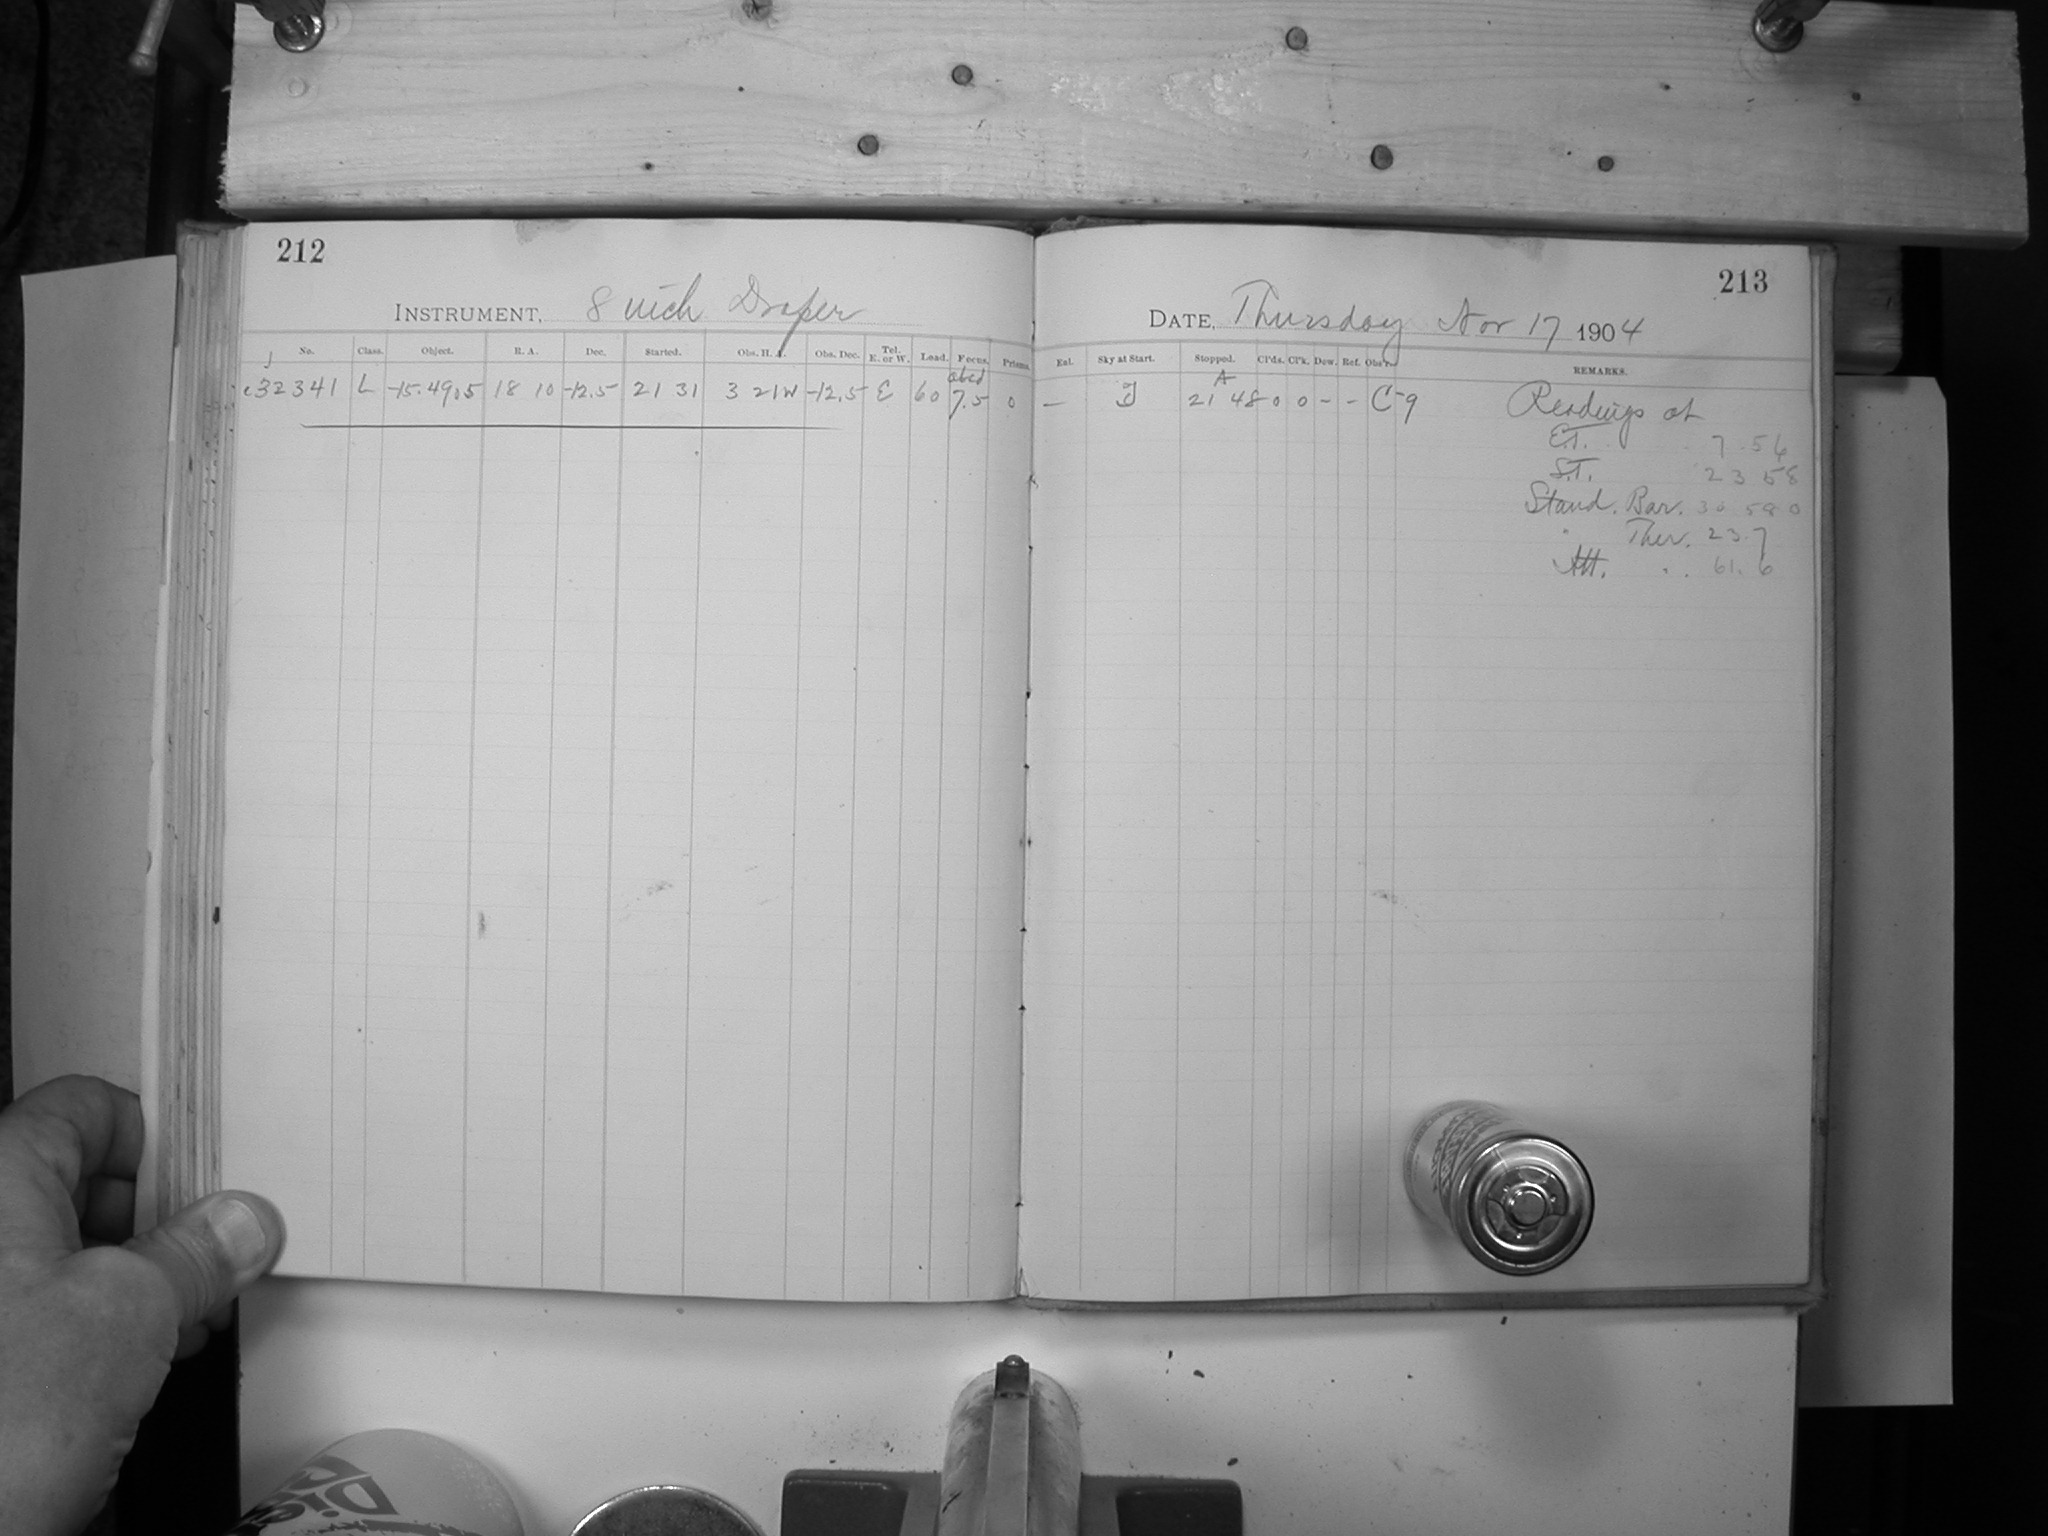 212
INSTRUMENT, 8 inch Draper
No. Class. Object. R. A. Dec. Started. Obs. H. A. Obs. Dec. Tel. E. or W. Load. Focus. Prisms.
abcd
32341 L -15.4905 18 10 -12.5 21 31 3 21W -12.5 E 60 7.5 0
213
DATE, Thursday Nov 17 1904
Exl. Sky at Start. Stopped. Cl'ds. Cl'k. Dew. Ref. Obs'r. REMARKS.
A
— 21 48 0 0 - - C-g Readings at
E.T. 7.54
S.T. 23 58
Stand. Bar. 30 580
" Ther. 23.7
Att. " 61.6